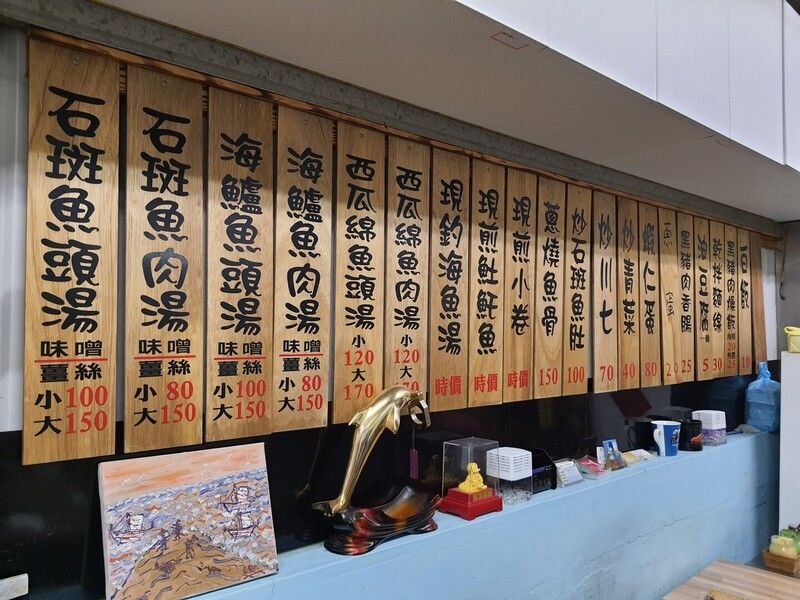 石斑魚頭湯
味噌
薑絲
小100
大150
石斑魚肉湯
味噌
薑絲
小80
大150
海鱸魚頭湯
味噌
薑絲
小100
大150
海鱸魚肉湯
味噌
薑絲
小80
大150
西瓜綿魚頭湯
小
120
大
170
西瓜綿魚肉湯
小
120
大
現釣海魚湯
時價
現煎虱魠魚
時價
現煎小卷
時價
蔥燒魚骨
150
炒石斑魚肚
100
炒川七
70
炒青菜
40
蝦仁蛋
80
20
黑豬肉香腸
25
油豆腐
5
乾拌麵線
30
黑豬肉燥飯
白飯
10